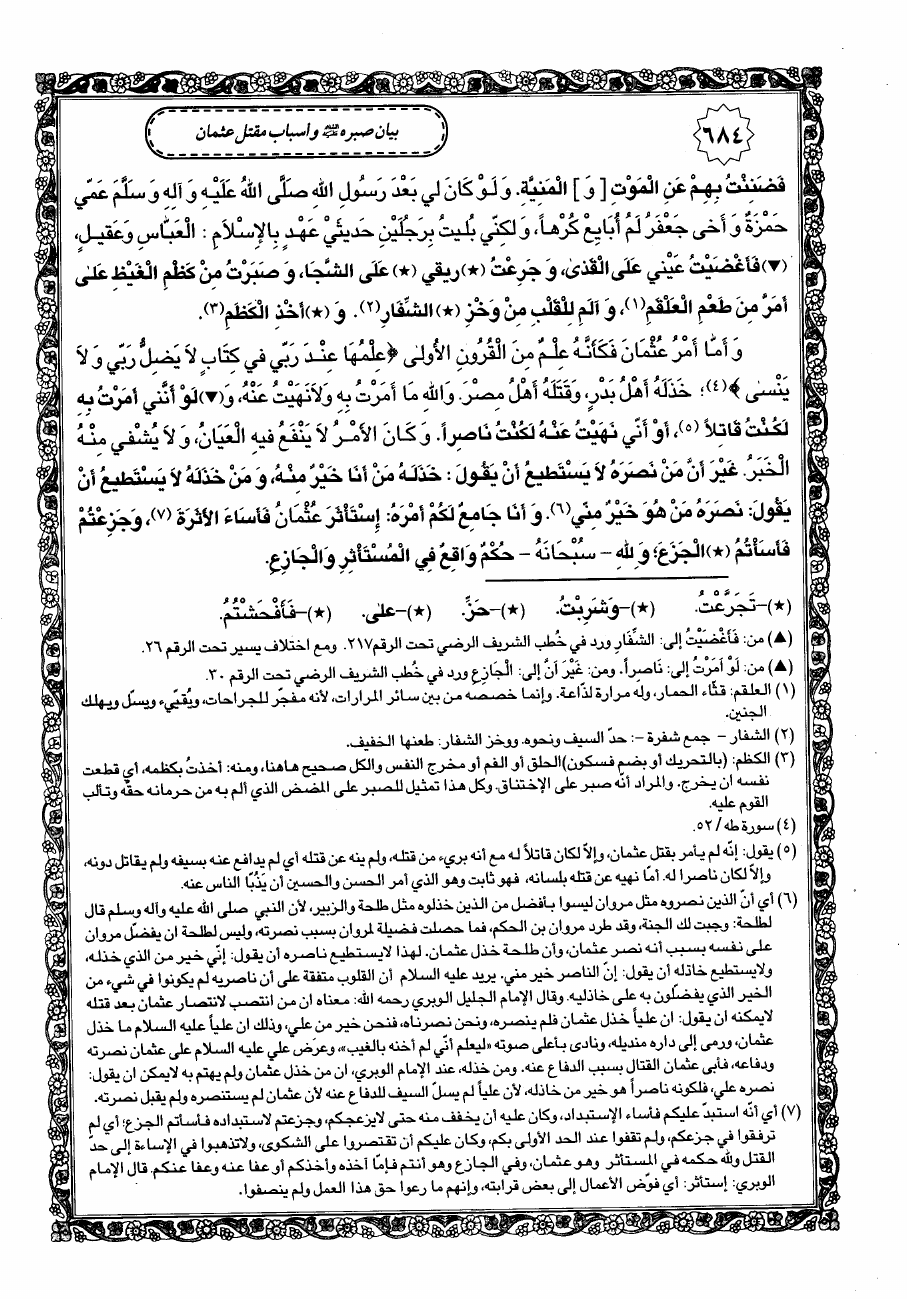 ٦٨٤
بيان صبره ﷺ و أسباب مقتل عثمان
فَضَنِنْتُ بِهِمْ عَنِ الْمَوْتِ [ وَ ] الْمَنِيَّةِ. وَ لَوْ كَانَ لي بَعْدَ رَسُولِ اللهِ صَلَّى اللهُ عَلَيْهِ وَ آلِهِ وَ سَلَّمَ عَمّي
حَمْزَةُ وَ أَخى جَعْفَرُ لَمْ أُبَايِعْ كُرْهاً، وَ لكِنّي بُليتُ بِرَجُلَيْنِ حَديثَيْ عَهْدٍ بِالإِسْلاَمِ : الْعَبَّاسِ وَ عَقيلٍ،
(▼)فَأَغْضَيْتُ عَيْني عَلَى الْقَذى، وَ جَرِعْتُ (★)ريقي (★) عَلَى الشَّجَا، وَ صَبَرْتُ مِنْ كَظْمِ الْغَيْظِ عَلى
أَمَرَّ مِنْ طَعْمِ الْعَلْقَمِ(١)، وَ آلَمِ لِلْقَلْبِ مِنْ وَخْزِ (★) الشِّفَارِ(٢). وَ (★)أَخْذِ الْكَظَمِ(٣).
وَ أَمَّا أَمْرُ عُثْمَانَ فَكَأَنَّهُ عِلْمٌ مِنَ الْقُرُونِ الأُولى ﴿ عِلْمُهَا عِنْدَ رَبّي في كِتَابٍ لاَ يَضِلُّ رَبّي وَ لاَ
يَنْسى ﴾(٤)؛ خَذَلَهُ أَهْلُ بَدْرٍ، وَقَتَلَهُ أَهْلُ مِصْرَ. وَاللهِ مَا أَمَرْتُ بِهِ وَلاَنَهَيْتُ عَنْهُ، وَ(▼)لَوْ أَنَّني أَمَرْتُ بِهِ
لَكُنْتُ قَاتِلاً (٥)، أَوْ أَنّي نَهَيْتُ عَنْهُ لَكُنْتُ نَاصِراً. وَ كَانَ الأَمْرُ لاَ يَنْفَعُ فيهِ الْعَيَانُ، وَ لاَ يُشْفي مِنْهُ
الْخَبَرُ. غَيْرَ أَنَّ مَنْ نَصَرَهُ لاَ يَسْتَطيعُ أَنْ يَقُولَ : خَذَلَهُ مَنْ أَنَا خَيْرٌ مِنْهُ، وَ مَنْ خَذَلَهُ لاَ يَسْتَطيعُ أَنْ
يَقُولَ: نَصَرَهُ مَنْ هُوَ خَيْرٌ مِنّي(٦). وَ أَنَا جَامِعٌ لَكُمْ أَمْرَهُ: إِسْتَأْثَرَ عُثْمَانُ فَأَسَاءَ الأَثَرَةَ (٧)، وَجَزِعْتُمْ
فَأَسَأْتُمُ (★)الْجَزَعَ؛ وَ لِلهِ – سُبْحَانَهُ – حُكْمٌ وَاقِعٌ فِي الْمُسْتَأْثِرِ وَالْجَازِعِ.
(★)-تَجَرَّعْتُ. (★)-وَشَرِبْتُ. (★)-حَزِّ. (★)-على. (★)-فَأَفْحَشْتُمُ.
(▲) من: فَأَغْضَيْتُ إلى: الشِّفَارِ ورد في خُطب الشريف الرضي تحت الرقم٢١٧. ومع اختلاف يسير تحت الرقم ٢٦.
(▲) من: لَوْ أَمَرْتُ إلى: نَاصِراً. ومن: غَيْرَ أَنَّ إلى: الْجَازِعِ ورد في خُطب الشريف الرضي تحت الرقم ٣٠.
(١) العلقم: قثّاء الحمار، وله مرارة لذّاعة. وإنما خصصه من بين سائر المرارات، لأنه مفجّر للجراحات، ويُقيّء ويسلّ ويهلك
الجنين.
(٢) الشفار – جمع شفرة –: حدّ السيف ونحوه. ووخز الشفار: طعنها الخفيف.
(٣) الكظم: (بالتحريك أو بضم فسكون)الحلق أو الفم أو مخرج النفس والكل صحيح هاهنا، ومنه: أخذتُ بكظمه، أي قطعت
نفسه أن يخرج. والمراد أنّه صبر على الإختناق. وكل هذا تمثيل للصبر على المضض الذي ألم به من حرمانه حقّه وتألب
القوم عليه.
(٤) سورة طه / ٥٢.
(٥) يقول: إنّه لم يأمر بقتل عثمان، وإلاّ لكان قاتلاً له مع أنه بريء من قتله، ولم ينه عن قتله أي لم يدافع عنه بسيفه ولم يقاتل دونه،
وإلاّ لكان ناصرا له. أمّا نهيه عن قتله بلسانه، فهو ثابت وهو الذي أمر الحسن والحسين أن يَذُبّا الناس عنه.
(٦) أي أنّ الذين نصروه مثل مروان ليسوا بأفضل من الذين خذلوه مثل طلحة والزبير، لأن النبي صلى الله عليه وآله وسلم قال
لطلحة: وجبت لك الجنة، وقد طرد مروان بن الحكم، فما حصلت فضيلة لمروان بسبب نصرته، وليس لطلحة ان يفضّل مروان
على نفسه بسبب أنه نصر عثمان، وأن طلحة خذل عثمان. لهذا لايستطيع ناصره أن يقول: إنّي خير من الذي خذله،
ولايستطيع خاذله أن يقول: إنّ الناصر خير مني. يريد عليه السلام أن القلوب متفقة على أن ناصريه لم يكونوا في شيء من
الخير الذي يفضّلون به على خاذليه. وقال الإمام الجليل الوبري رحمه الله: معناه ان من انتصب لانتصار عثمان بعد قتله
لايمكنه ان يقول: ان علياً خذل عثمان فلم ينصره، ونحن نصرناه، فنحن خير من علي، وذلك ان علياً عليه السلام ما خذل
عثمان، ورمى إلى داره منديله، ونادى بأعلى صوته «ليعلم أنّي لم أخنه بالغيب»، وعرّض علي عليه السلام على عثمان نصرته
ودفاعه، فأبى عثمان القتال بسبب الدفاع عنه. ومن خذله، عند الإمام الوبري، ان من خذل عثمان ولم يهتم به لايمكن ان يقول:
نصره علي، فلكونه ناصراً هو خير من خاذله، لأن علياً لم يسلّ السيف للدفاع عنه لأن عثمان لم يستنصره ولم يقبل نصرته.
(٧) أي أنّه استبدّ عليكم فأساء الإستبداد، وكان عليه أن يخفف منه حتى لايزعجكم، وجزعتم لاستبداده فـأسأتم الجزع؛ أي لم
ترفقوا في جزعكم، ولم تقفوا عند الحد الأولى بكم، وكان عليكم أن تقتصروا على الشكوى، ولاتذهبوا في الإساءة إلى حدّ
القتل ولله حكمه في المستأثر وهو عثمان، وفي الجازع وهو أنتم فإمّا آخذه وأخذكم أو عفا عنه وعفا عنكم. قال الإمام
الوبري: إستأثر: أي فوّض الأعمال إلى بعض قرابته، وإنهم ما رعوا حق هذا العمل ولم ينصفوا.